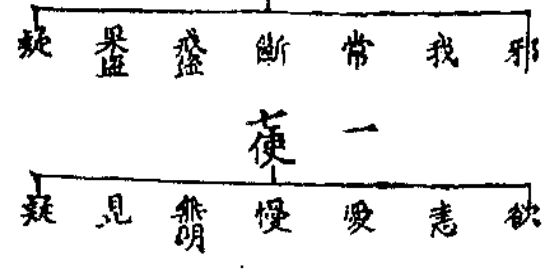 邪 我 常 斷 戒盜 果盜 疑
一 七使
欲 恚 愛 慢 無明 見 疑